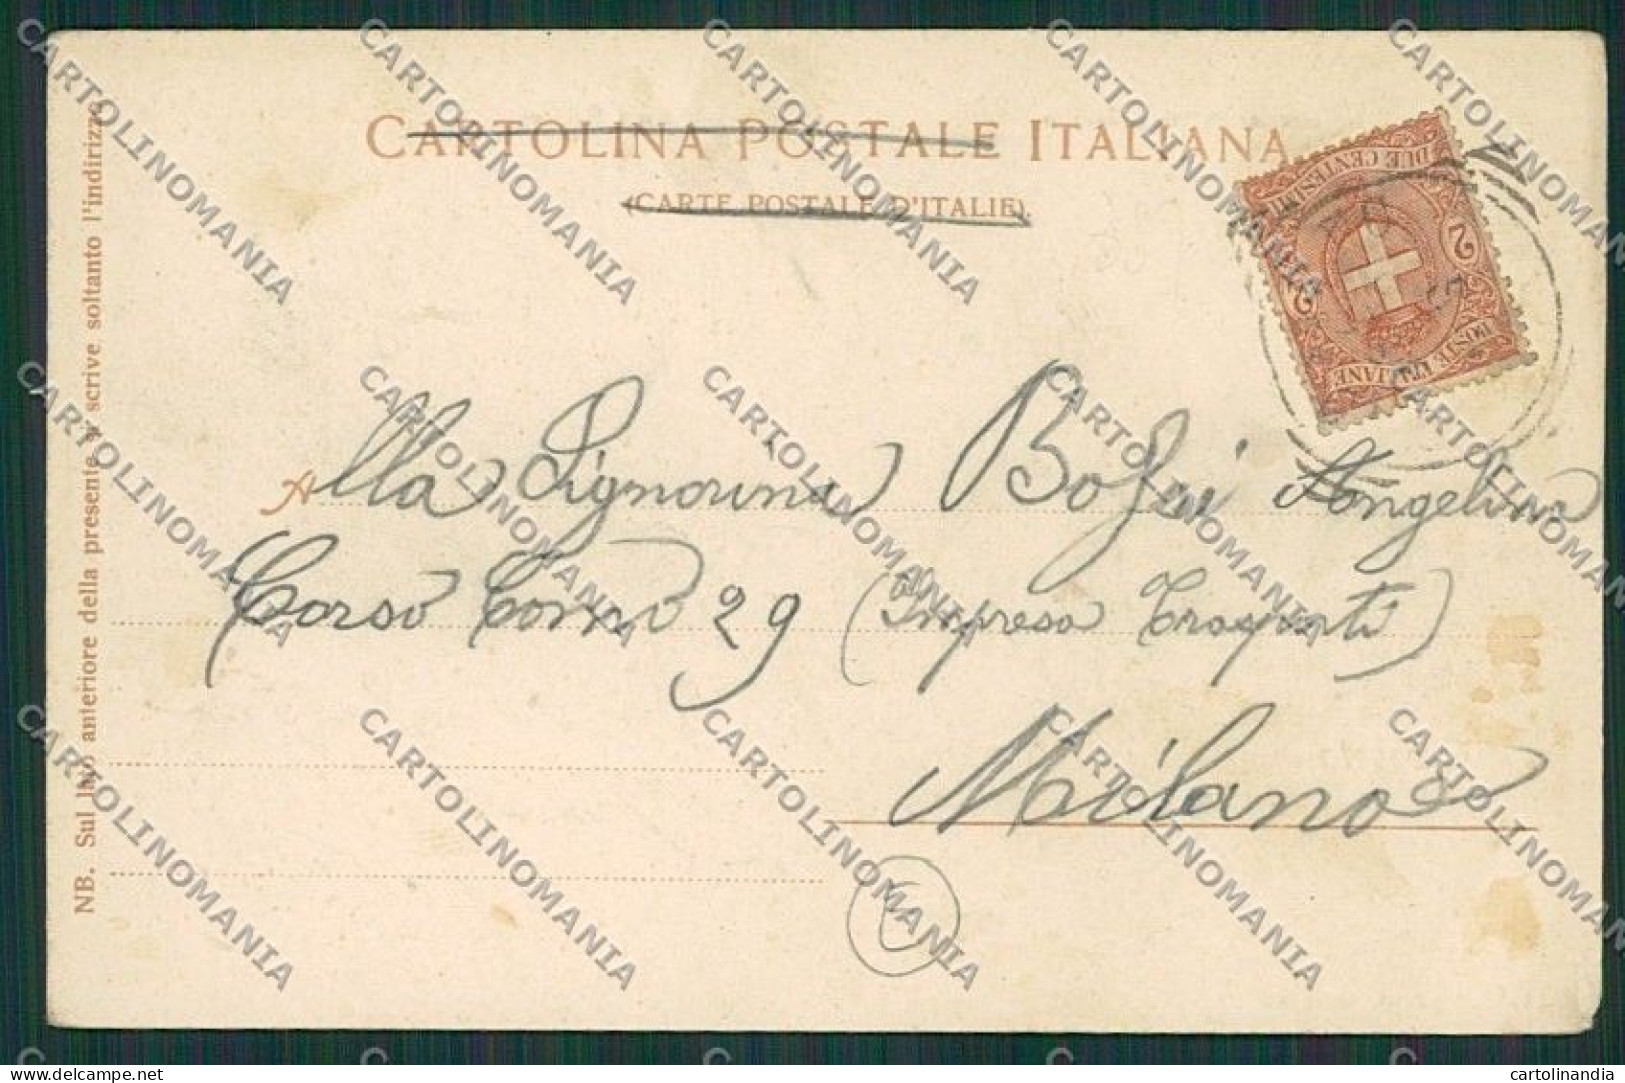 CARTOLINA POSTALE ITALIANA
(CARTE POSTALE D'ITALIE).
DUE CENTESIMI
2 2
POSTE ITALIANE
NB. Sul lato anteriore della presente si scrive soltanto l'indirizzo
Alla Signorina Angelina
Corso Como 29 (Impresa Trasporti)
Milano
CARTOLINOMANIA
www.delcampe.net
cartolinandia